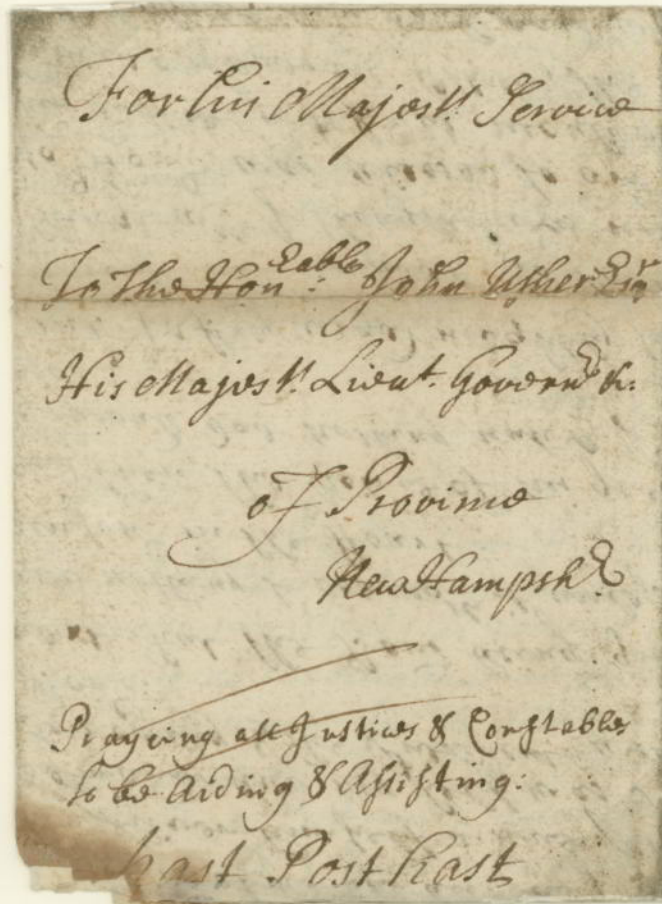 For his Majest^s Service
To the Hon^rable: John Usher Esq^r
His Majest^s Lieut. Govern^r &c:
of Province
New Hampsh^r
Praying all Justices & Constables
to be Aiding & Assisting:
hast Post hast